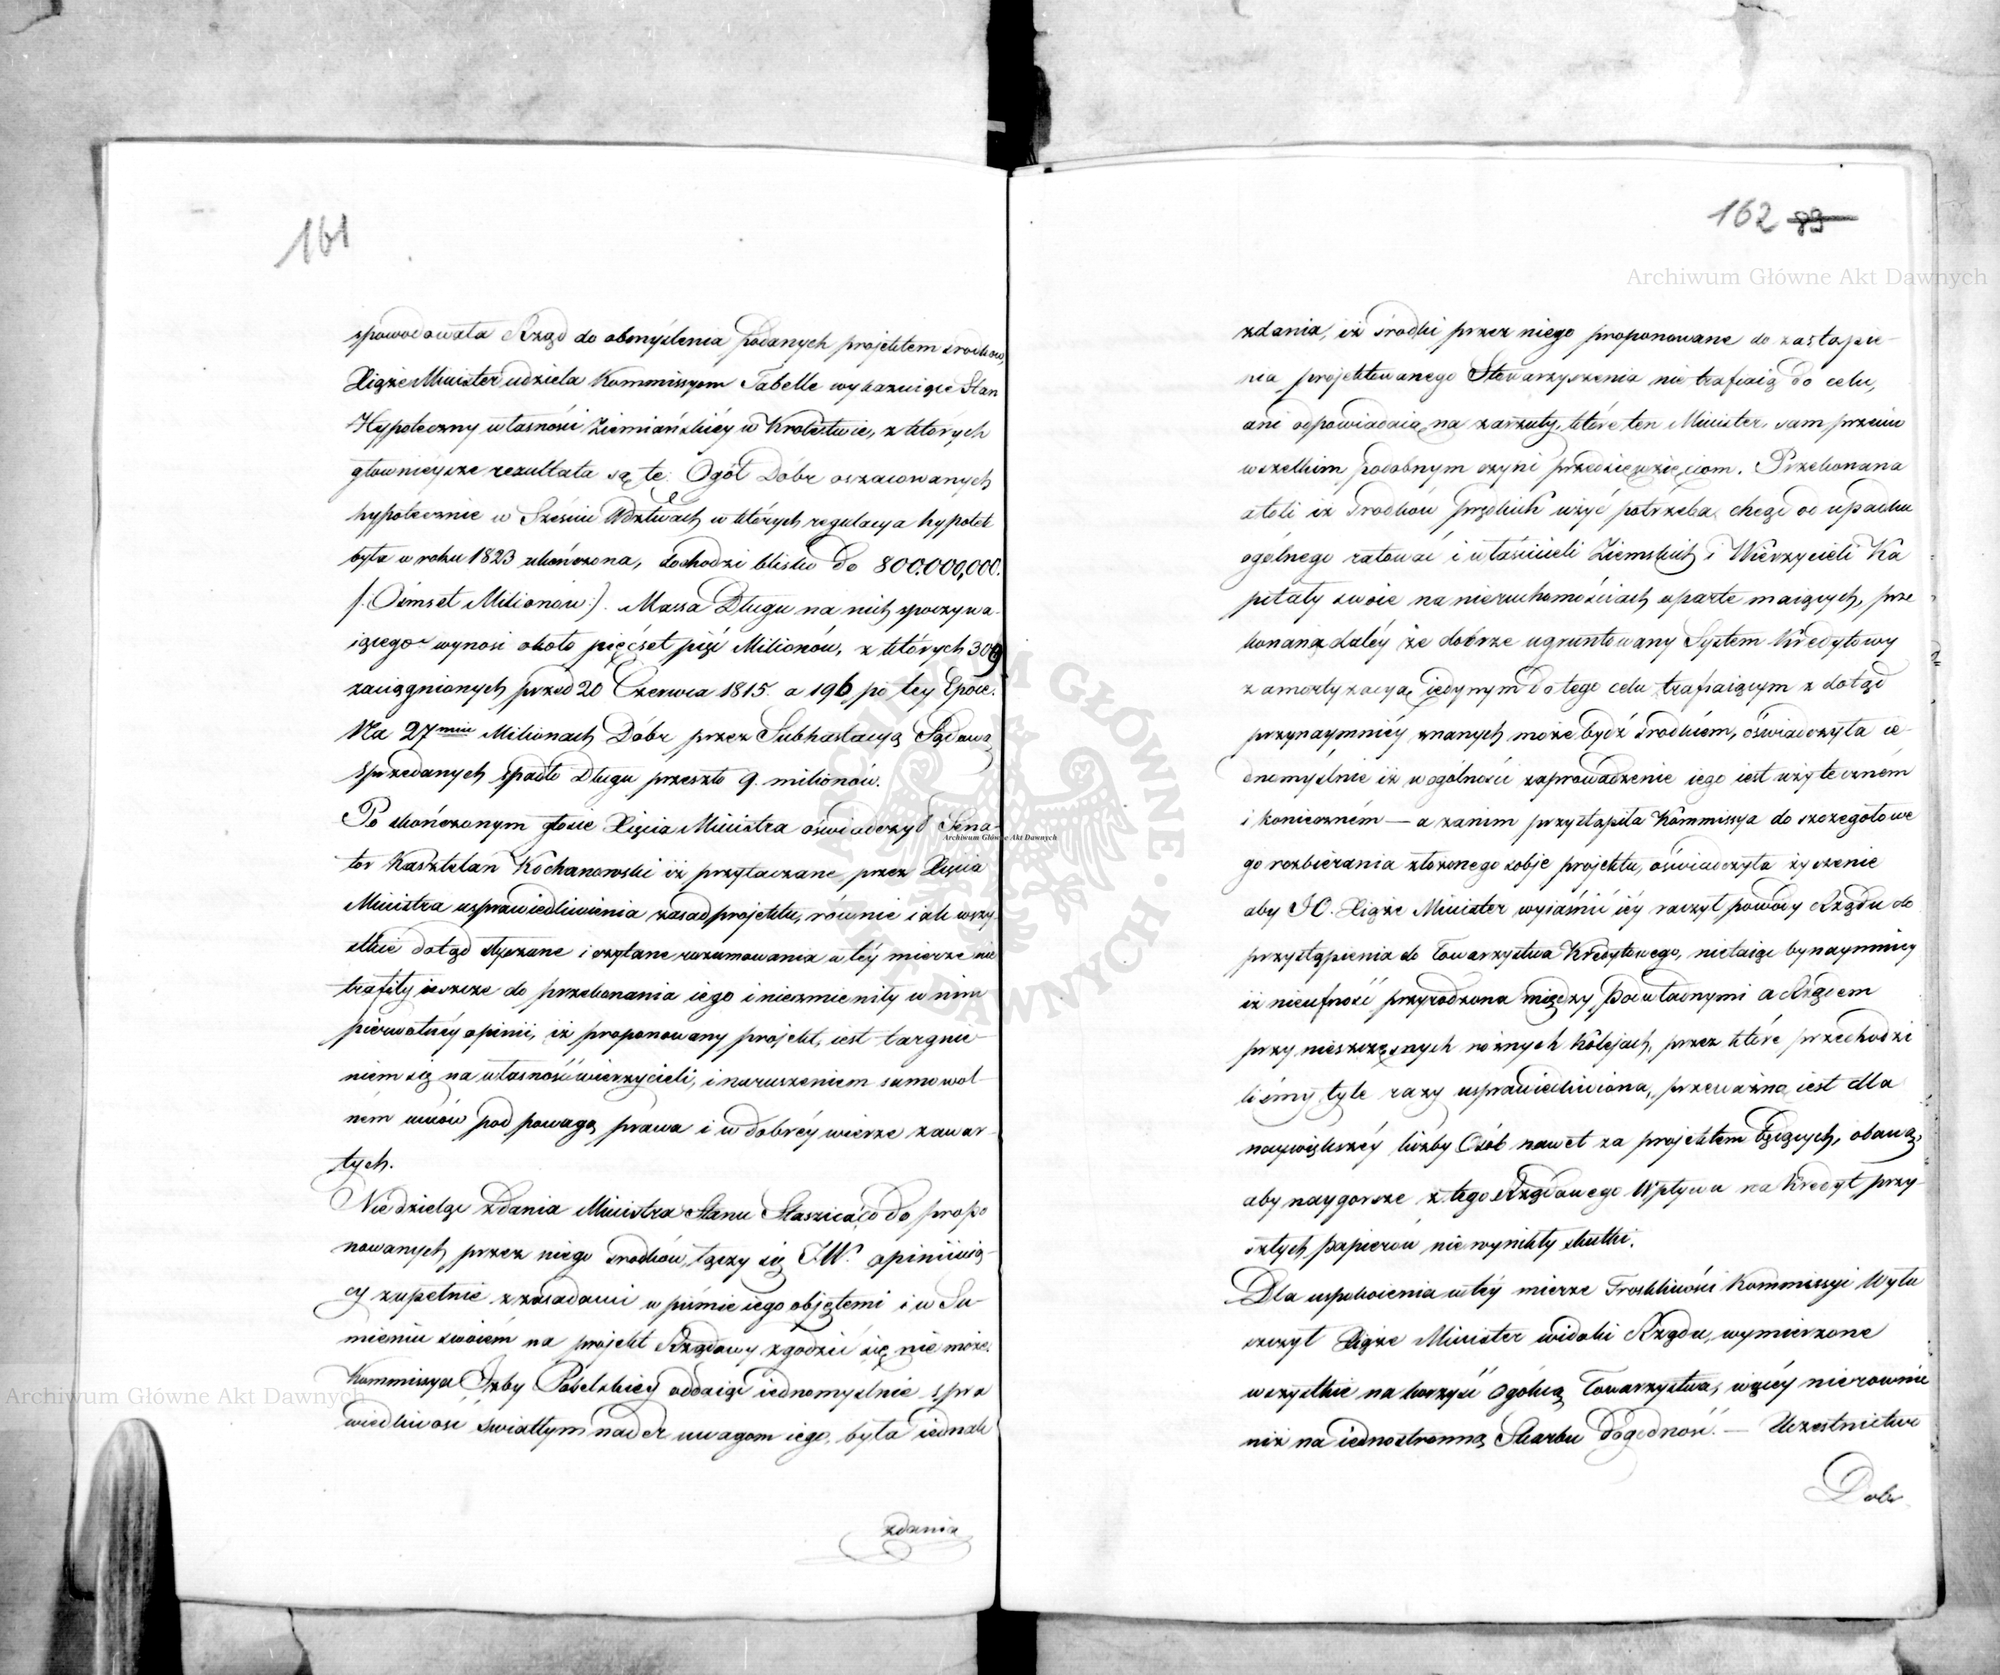 161
spowodowała Rząd do obmyślenia podanych projektem środków,
Xiąże Minister udziela Kommissyom Tabelle wykazuiące Stan
Hypoteczny własności Ziemiańskiéy w Królestwie, z których
głownieysze rezultata są te: Ogół Dóbr oszacowanych
hypotecznie w Sześciu Wdztwach w których regulacya hypotek
była w roku 1823 ukończona, dochodzi blisko do 800.000,000.
/: Ośmset Milionów :/. Massa Długu na nich spoczywa-
iącego wynosi około pięćset pięć Milionów, z których 309
zaciągnionych przed 20 Czerwca 1815. a 196 po tey Epoce.
Na 27miu Milionach Dóbr przez Subhastacyą Sądową
sprzedanych spadło Długu przeszło 9. milionów.
Po skończonym głosie Xięcia Ministra oświadczył Sena-
tor Kasztelan Kochanowski iż przytaczane przez Xięcia
Ministra usprawiedliwienia zasad projektu, równie iak wszy-
stkie dotąd słyszane i czytane rozumowania w téy mierze nie
trafiły ieszcze do przekonania iego i niezmieniły w nim
pierwotnéy opinii, iż proponowany projekt, iest targnie-
niem się na własność wierzycieli, i naruszeniem samowol-
ném umów pod powagą prawa i w dobréy wierze zawar-
tych.
Niedzieląc zdania Ministra Stanu Staszica co do propo
nowanych przez niego środków, łączy się JW. opiniuią-
cy zupełnie z zasadami w piśmie iego objętemi i w Su-
mieniu swoiém na projekt Rządowy zgodzić się nie może.
Kommissya Izby Poselskiey oddaiąc iednomyslnie spra
wiedliwość światłym nader uwagom iego, była iednak
zdania
162 89
Archiwum Główne Akt Dawnych
zdania, iż środki przez niego proponowane do zastąpie-
nia projektowanego Stowarzyszenia nie trafiaią do celu,
ani odpowiadaią na zarzuty, które ten Minister sam przeciw
wszelkim podobnym czyni przedsięwzięciom. Przekonana
atoli iż środków prędkich użyć potrzeba, chcąc od upadku
ogólnego ratować i właścicieli Ziemskich i Wierzycieli Ka
pitały swoie na nieruchomościach oparte maiących, prze
konaną daléy że dobrze ugruntowany System Kredytowy
z amortyzacyą, iedynym do tego celu trafiaiącym z dotąd
przynaymniéy znanych może bydź środkiem, oświadczyła ie-
dnomyślnie iż w ogólności zaprowadzenie iego iest użyteczném
i konieczném — a zanim przystąpiła Kommissya do szczegołowe
go rozbierania złożonego sobie projektu, oświadczyła życzenie
aby JO. Xiąże Minister wyiaśnić iéy raczył powody Rządu do
przystąpienia do Towarzystwa Kredytowego, nietaiąc bynaymniey
iż nieufność przyrodzona między poiedynczymi a Rządem
przy nieszczęsnych rożnych kolejach, przez które przechodzi
liśmy tyle razy usprawiedliwiona, przeważną iest dla
naywiększéy liczby Osób nawet za projektem będących, obawą,
aby naygorsze z tego Rządowego Wpływu na Kredyt przy-
szłych papierów nie wynikły skutki.
Dla uspokoienia w téy mierze Troskliwości Kommissyi Wyłu
szczył Xiąże Minister widoki Rządu, wymierzone
wszystkie na korzyść ogólną Towarzystwa, więcéy nierównie
niż na iednostronną Skarbu dogodność. — Uczestnictwo
Dobr
Archiwum Główne Akt Dawnych
Archiwum Główne Akt Dawnych
ARCHIWUM GŁÓWNE · AKT DAWNYCH ·